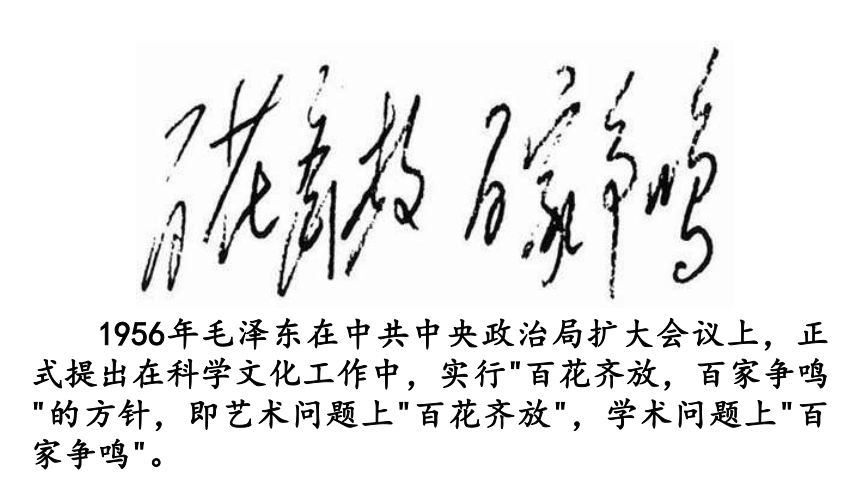 百花齐放 百家争鸣
1956年毛泽东在中共中央政治局扩大会议上，正
式提出在科学文化工作中，实行"百花齐放，百家争鸣
"的方针，即艺术问题上"百花齐放"，学术问题上"百
家争鸣"。